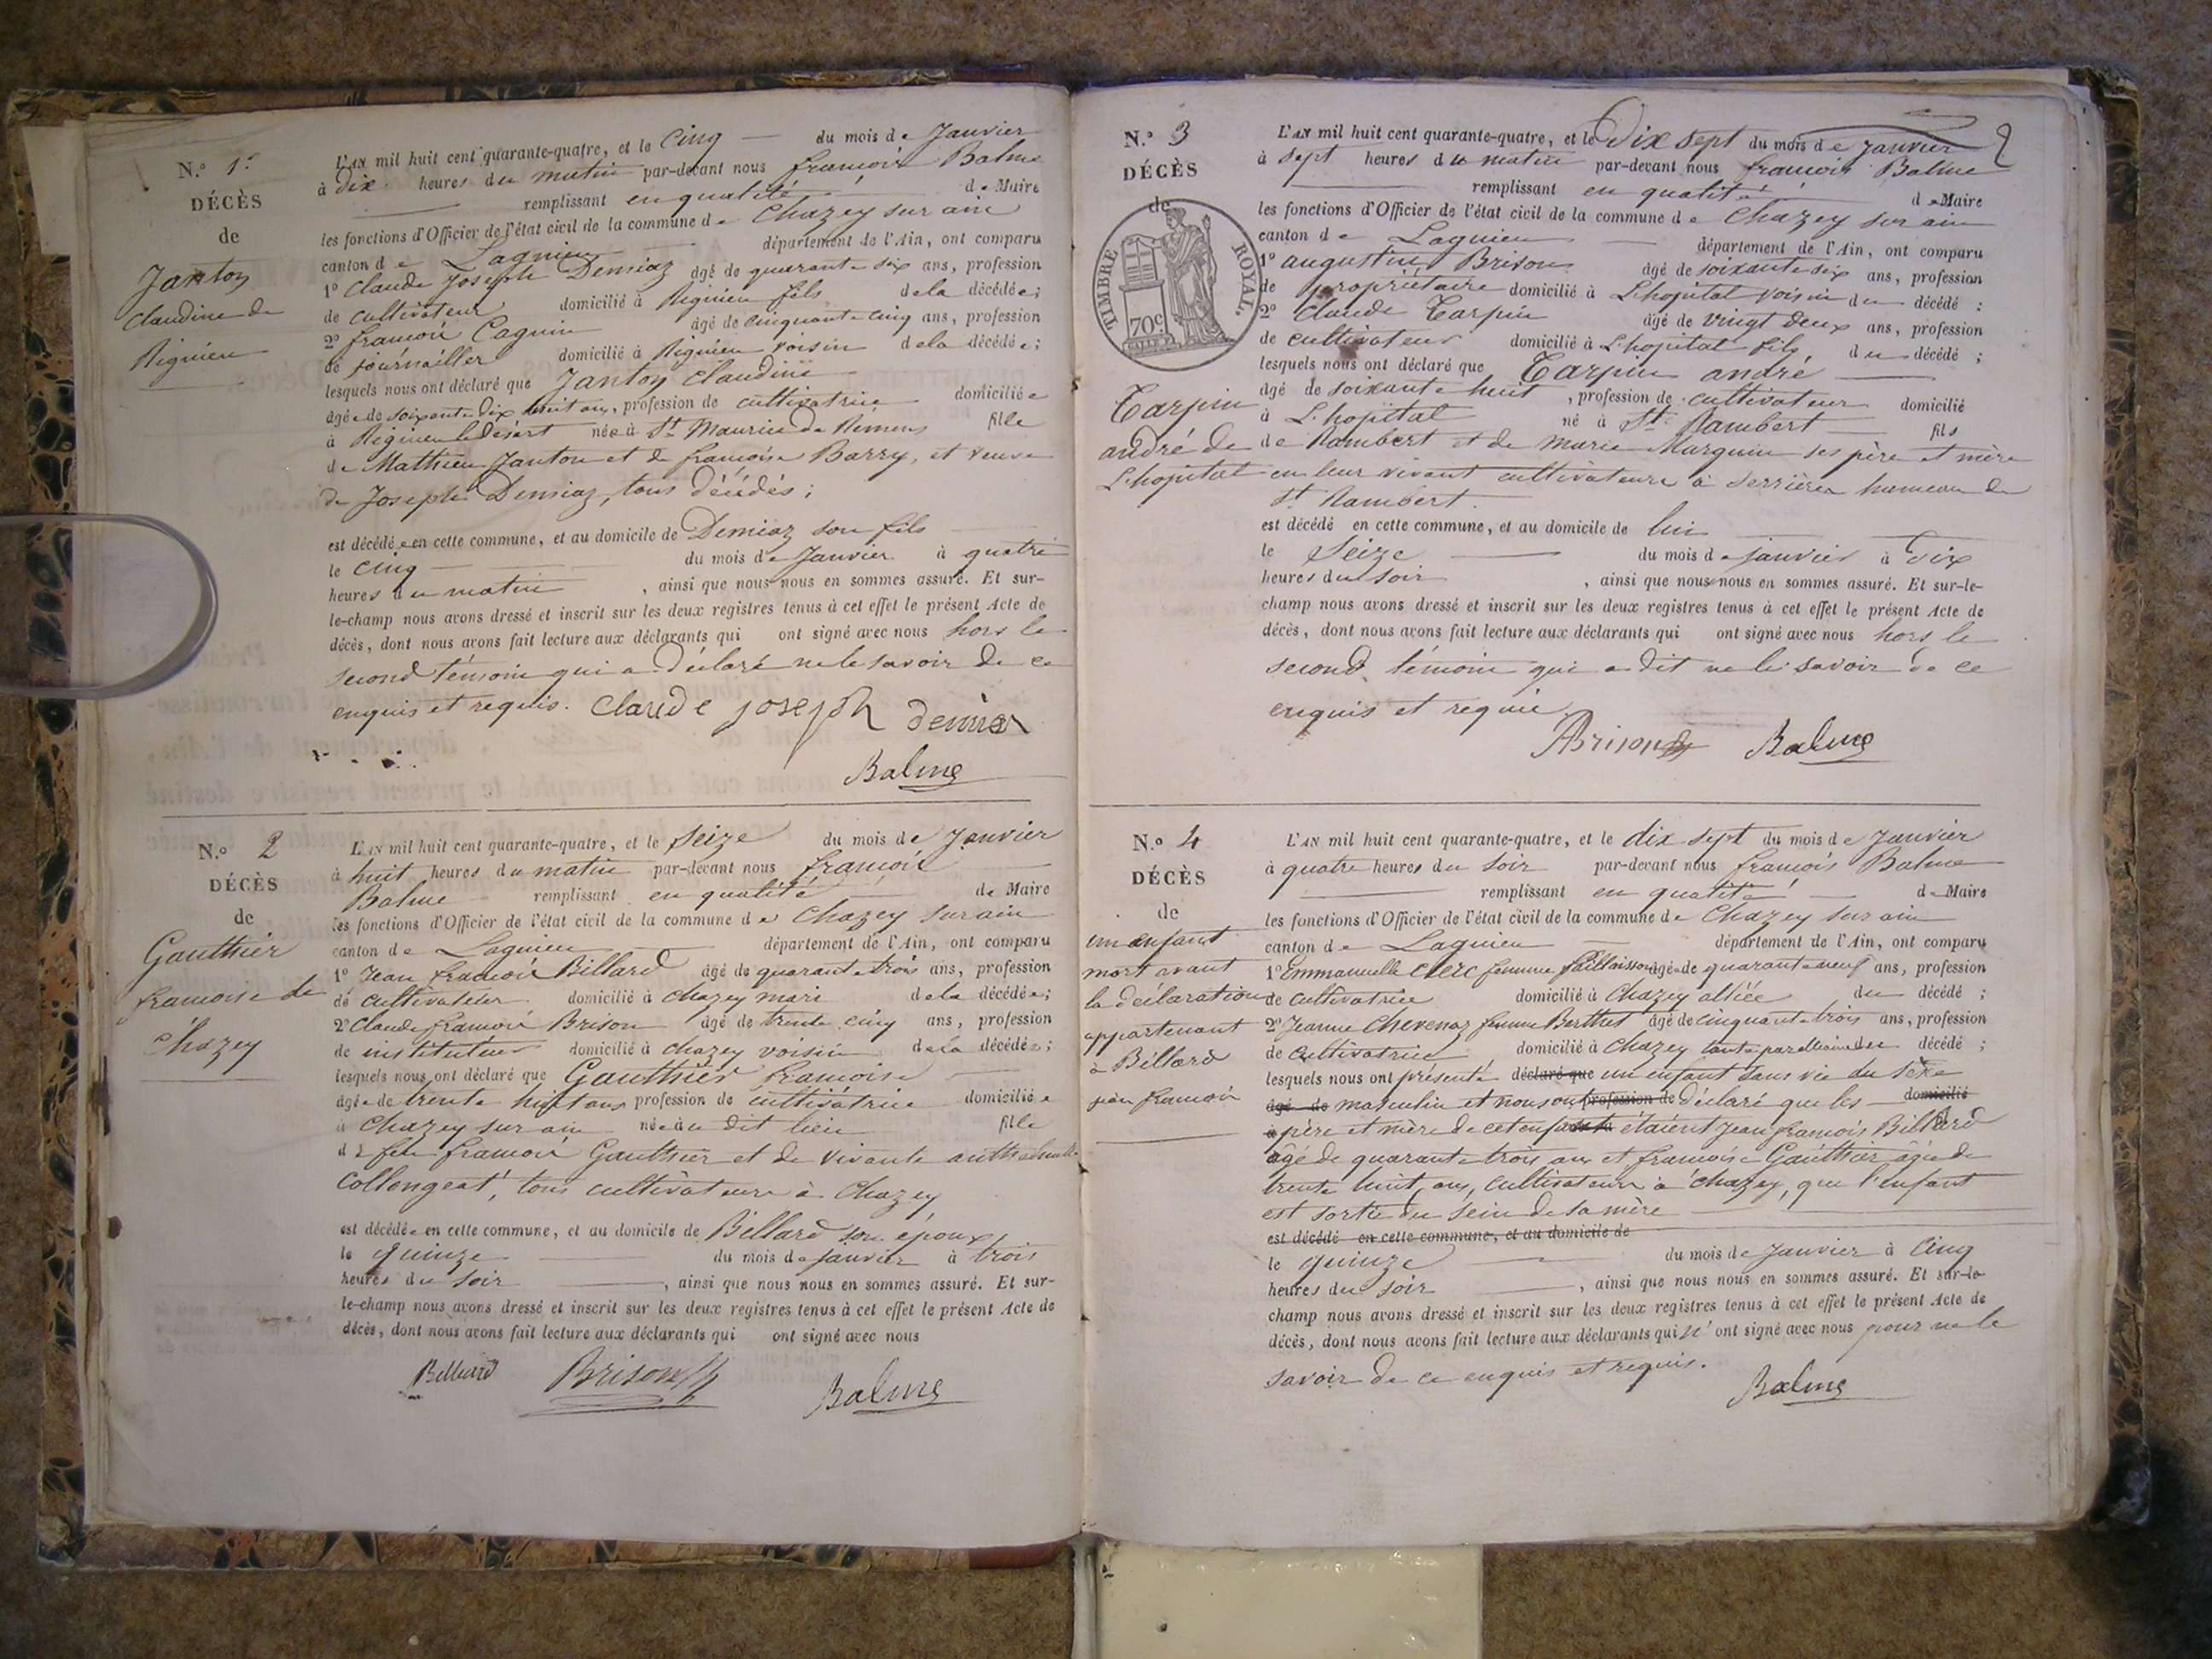 N.° 1.er
DÉCÈS
de
Janton
Claudine de
Rignieu
L'AN mil huit cent quarante-quatre, et le Cinq du mois de Janvier
à Dix heures du matin par-devant nous françois Balme
remplissant en qualité de Maire
les fonctions d'Officier de l'état civil de la commune de Chazey sur ain
canton de Lagnieu département de l'Ain, ont comparu
1° Claude Joseph Demiaz âgé de quarante six ans, profession
de cultivateur domicilié à Rignieu fils de la décédée;
2° françois Caguin âgé de cinquante cinq ans, profession
de journailler domicilié à Rignieu voisin de la décédée;
lesquels nous ont déclaré que Janton Claudine
âgée de soixante dix huit ans, profession de cultivatrice domiciliée
à Rignieu le désert née à St Maurice de Remens fille
de Mathieu Janton et de françoise Barry, et veuve
de Joseph Demiaz, tous décédés;
est décédée en cette commune, et au domicile de Demiaz son fils
le cinq du mois de Janvier à quatre
heures du matin, ainsi que nous nous en sommes assuré. Et sur-
le-champ nous avons dressé et inscrit sur les deux registres tenus à cet effet le présent Acte de
décès, dont nous avons fait lecture aux déclarants qui ont signé avec nous hors le
second témoin qui a déclaré ne le savoir de ce
enquis et requis. Claude joseph demiaz
Balme
N.° 2
DÉCÈS
de
Gauthier
francoise de
Chazey
L'AN mil huit cent quarante-quatre, et le Seize du mois de Janvier
à huit heures du matin par-devant nous françois
Balme remplissant en qualité de Maire
les fonctions d'Officier de l'état civil de la commune de Chazey sur ain
canton de Lagnieu département de l'Ain, ont comparu
1° Jean françois Billard âgé de quarante trois ans, profession
de cultivateur domicilié à Chazey mari de la décédée;
2° Claude françois Brison âgé de trente cinq ans, profession
de instituteur domicilié à Chazey voisin de la décédée;
lesquels nous ont déclaré que Gauthier françoise
âgée de trente huit ans profession de cultivatrice domiciliée
à Chazey sur ain née au dit lieu fille
de feu françois Gauthier et de vivante
Collongeat, tous cultivateurs à Chazey
est décédée en cette commune, et au domicile de Billard son époux
le quinze du mois de janvier à trois
heures du soir, ainsi que nous nous en sommes assuré. Et sur-
le-champ nous avons dressé et inscrit sur les deux registres tenus à cet effet le présent Acte de
décès, dont nous avons fait lecture aux déclarants qui ont signé avec nous
Billiard Brison Balme
N.° 3
DÉCÈS
de
TIMBRE ROYAL.
70c
Tarpin
andré de
L'hopital
L'AN mil huit cent quarante-quatre, et le Dix sept du mois de Janvier
à sept heures du matin par-devant nous françois Balme
remplissant en qualité de Maire
les fonctions d'Officier de l'état civil de la commune de Chazey sur ain
canton de Lagnieu département de l'Ain, ont comparu
1° augustin Brison âgé de soixante six ans, profession
de propriétaire domicilié à L'hopital voisin du décédé :
2° Claude Tarpin âgé de vingt deux ans, profession
de cultivateur domicilié à L'hopital fils, du décédé ;
lesquels nous ont déclaré que Tarpin andré
âgé de soixante huit, profession de cultivateur domicilié
à L'hopital né à St Rambert fils
de Rambert et de marie Marguin ses père et mère
en leur vivant cultivateurs à Serrières hameau de
St Rambert.
est décédé en cette commune, et au domicile de lui
le Seize du mois de janvier à Dix
heures du soir, ainsi que nous nous en sommes assuré. Et sur-le-
champ nous avons dressé et inscrit sur les deux registres tenus à cet effet le présent Acte de
décès, dont nous avons fait lecture aux déclarants qui ont signé avec nous hors le
second témoin qui a dit ne le savoir de ce
enquis et requis
ABrison Balme
N.° 4
DÉCÈS
de
un enfant
mort avant
la déclaration
appartenant
à Billard
jean francois
L'AN mil huit cent quarante-quatre, et le dix sept du mois de Janvier
à quatre heures du soir par-devant nous françois Balme
remplissant en qualité de Maire
les fonctions d'Officier de l'état civil de la commune de Chazey sur ain
canton de Lagnieu département de l'Ain, ont comparu
1° Emmanuelle Clerc femme Paillaisson âgée de quarante neuf ans, profession
de cultivatrice domicilié à Chazey alliée du décédé ;
2° Jeanne Chevenaz femme Berthet âgé de cinquante trois ans, profession
de cultivatrice domicilié à Chazey tante par alliance du décédé ;
lesquels nous ont présenté déclaré que un enfant sans vie du sexe
âgé de masculin et nous ont profession de déclaré que les domicilié
à père et mère de cet enfant étaient Jean françois Billard
âgé de quarante trois ans et françoise Gauthier âgée de
trente huit ans, cultivateurs à Chazey, que l'enfant
est sorti du sein de sa mère
est décédé en cette commune, et au domicile de
le quinze du mois de Janvier à Cinq
heures du soir, ainsi que nous nous en sommes assuré. Et sur-le-
champ nous avons dressé et inscrit sur les deux registres tenus à cet effet le présent Acte de
décès, dont nous avons fait lecture aux déclarants qui n'ont signé avec nous pour ne le
savoir de ce enquis et requis.
Balme